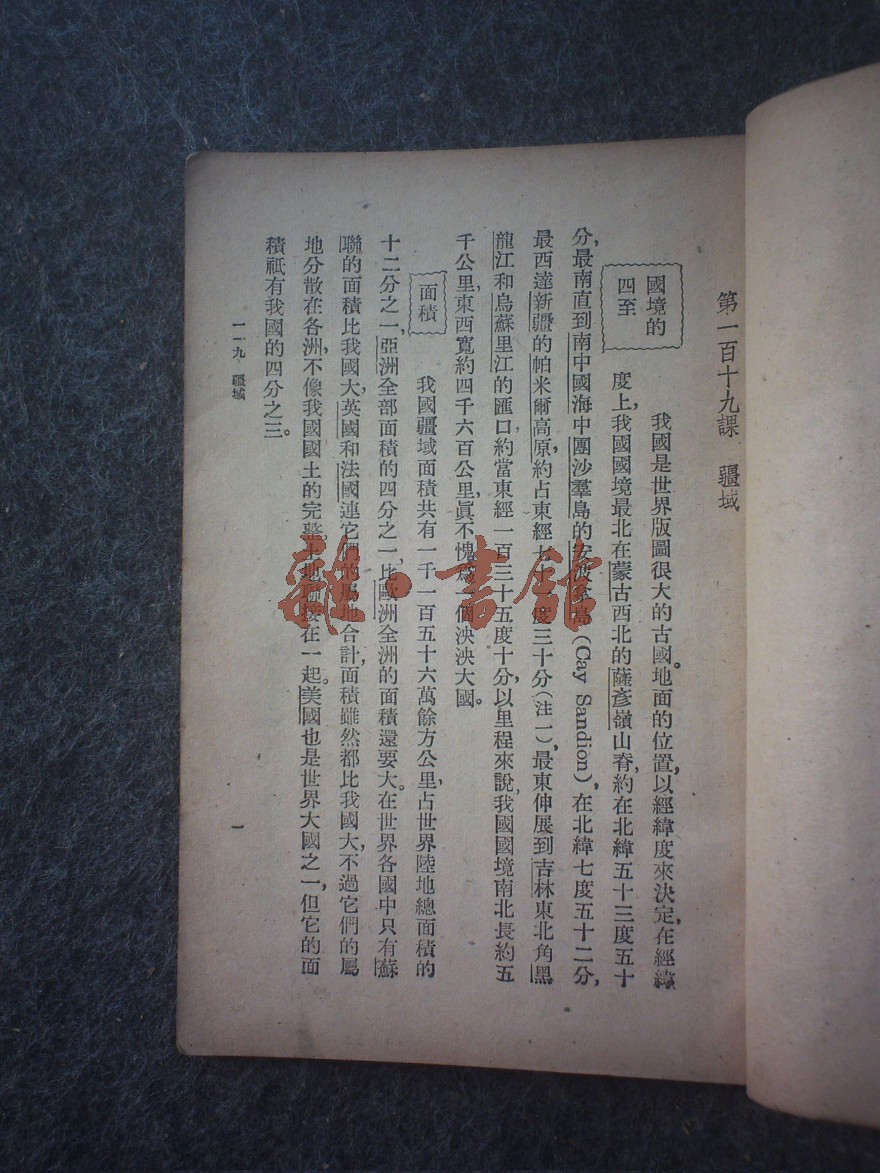 第一百十九課　疆域
國境的
四至
我國是世界版圖很大的古國。地面的位置，以經緯度來決定，在經緯
度上，我國國境最北在蒙古西北的薩彥嶺山脊，約在北緯五十三度五十
分，最南直到南中國海中團沙羣島的安波羣島（Cay Sandion），在北緯七度五十二分，
最西達新疆的帕米爾高原，約占東經七十度三十分（注一），最東伸展到吉林東北角黑
龍江和烏蘇里江的匯口，約當東經一百三十五度十分，以里程來說，我國國境南北長約五
千公里，東西寬約四千六百公里，眞不愧爲一個泱泱大國。
面積
我國疆域面積共有一千一百五十六萬餘方公里，占世界陸地總面積的
十二分之一，亞洲全部面積的四分之一，比歐洲全洲的面積還要大。在世界各國中只有蘇
聯的面積比我國大，英國和法國連它們的屬地合計，面積雖然都比我國大，不過它們的屬
地分散在各洲，不像我國國土的完整土地聯接在一起。美國也是世界大國之一，但它的面
積祇有我國的四分之三。
一一九　疆域
一
雜·書館